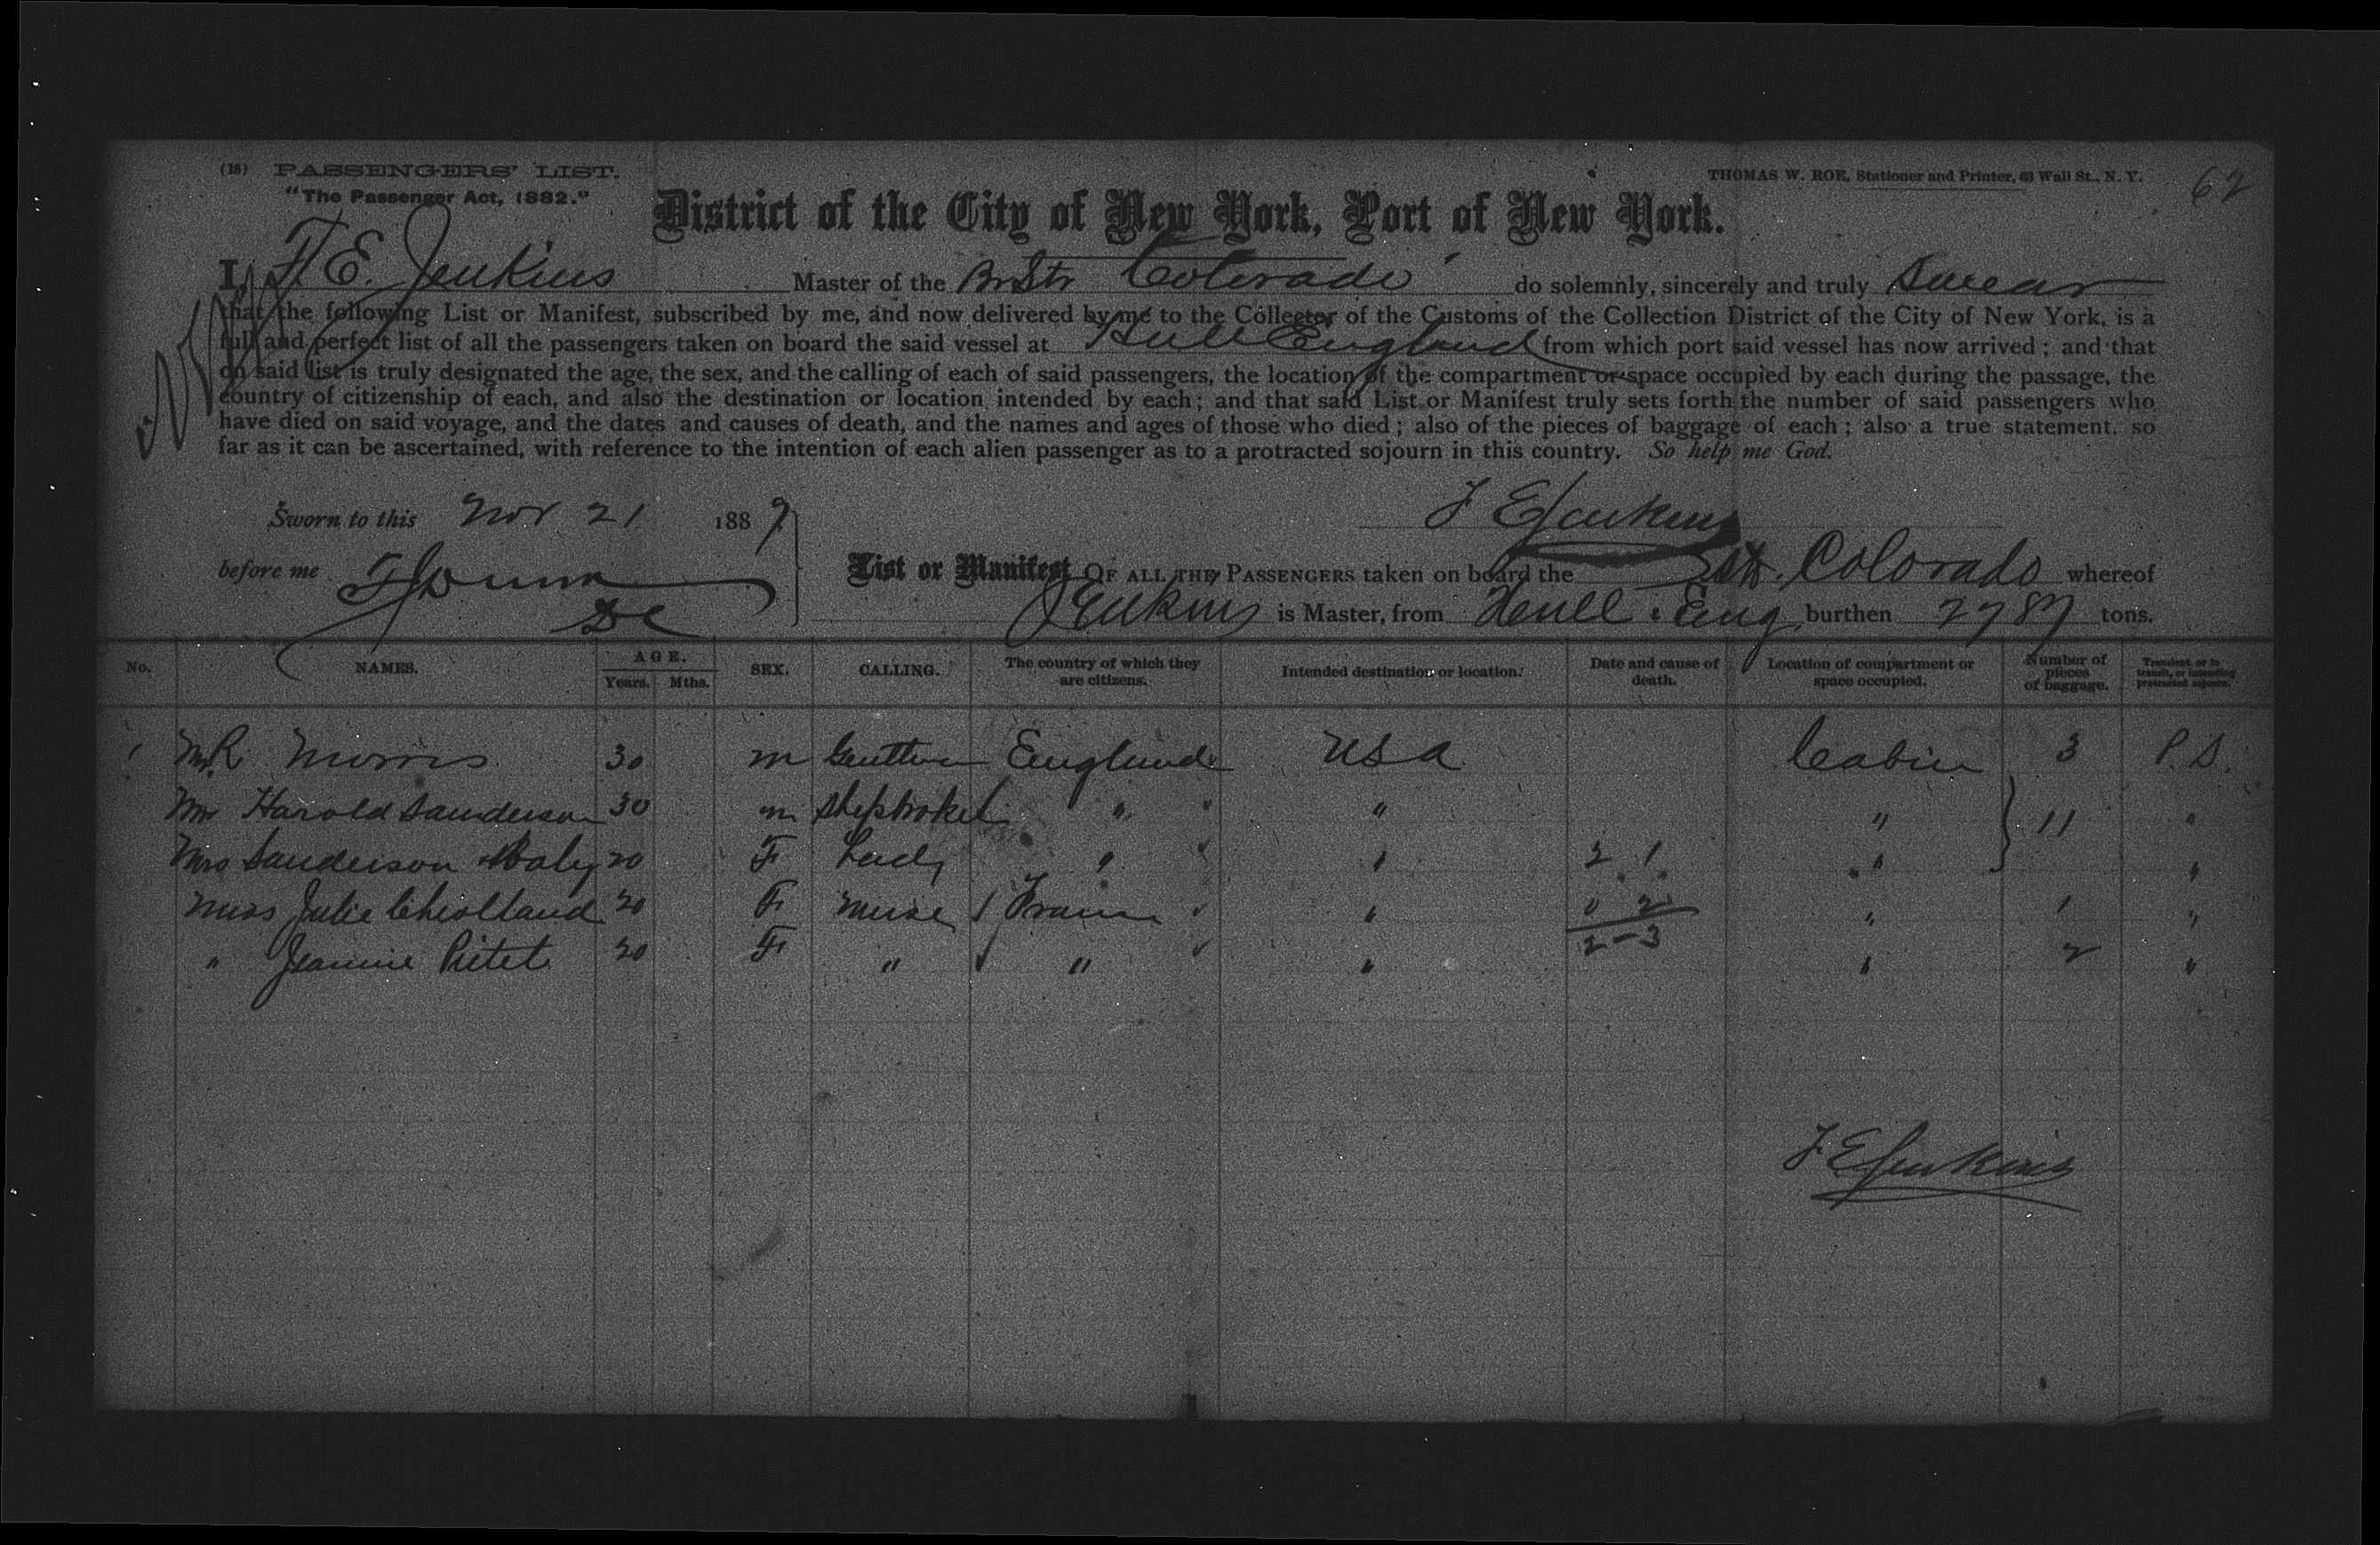 (18) PASSENGERS' LIST.
"The Passenger Act, 1882."
THOMAS W. ROE, Stationer and Printer, 63 Wall St., N. Y.
62
District of the City of New York, Port of New York.
I, F. E. Jenkins Master of the Br Str "Colorado" do solemnly, sincerely and truly Swear
that the following List or Manifest, subscribed by me, and now delivered by me to the Collector of the Customs of the Collection District of the City of New York, is a
full and perfect list of all the passengers taken on board the said vessel at Hull England from which port said vessel has now arrived; and that
on said list is truly designated the age, the sex, and the calling of each of said passengers, the location of the compartment or space occupied by each during the passage, the
country of citizenship of each, and also the destination or location intended by each; and that said List or Manifest truly sets forth the number of said passengers who
have died on said voyage, and the dates and causes of death, and the names and ages of those who died; also of the pieces of baggage of each; also a true statement, so
far as it can be ascertained, with reference to the intention of each alien passenger as to a protracted sojourn in this country. So help me God.
Sworn to this Nov 21 1887 F E Jenkins
before me
List or Manifest OF ALL THE PASSENGERS taken on board the Str. Colorado whereof
Jenkins is Master, from Hull Eng burthen 2787 tons.
No. NAMES. AGE. Years. Mths. SEX. CALLING. The country of which they are citizens. Intended destination or location. Date and cause of death. Location of compartment or space occupied. Number of pieces of baggage. Transient, or in transit, or intending protracted sojourn.
1 Mr R Morris 30 m Gentln England USA Cabin 3 P.S.
Mr Harold Sanderson 30 m Shipbroker " " " 11 "
Mrs Sanderson & Baby 20 F Lady " " 2 1 " "
Miss Julie 20 F Nurse / France " 0 2 " 1 "
" Jeannie Pictet 20 F " " " 2-3 " 2 "
F E Jenkins